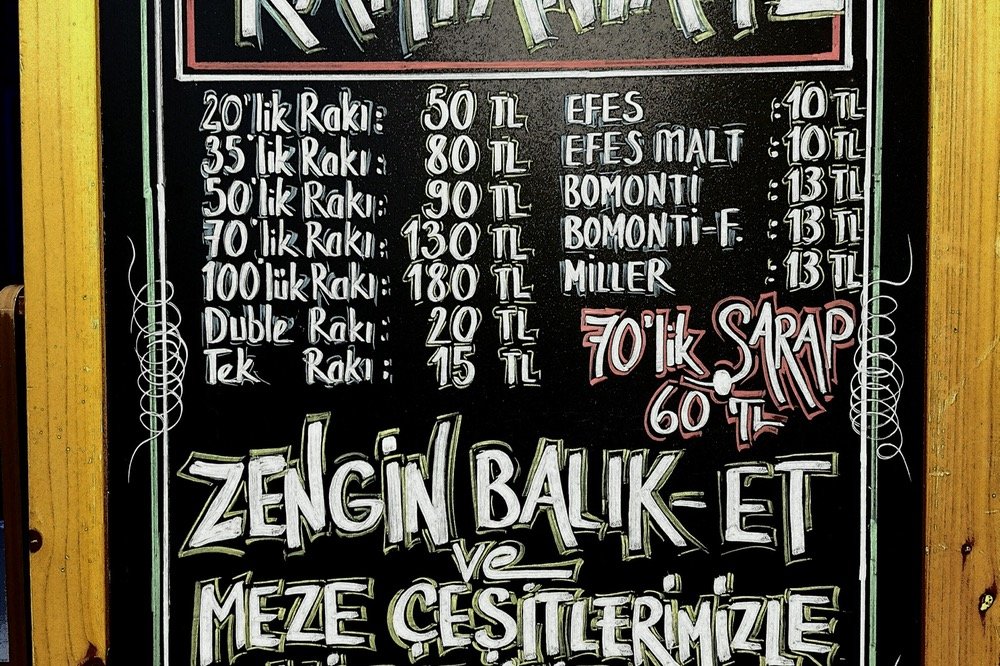 20'lik Rakı: 50 TL
35'lik Rakı: 80 TL
50'lik Rakı: 90 TL
70'lik Rakı: 130 TL
100'lük Rakı: 180 TL
Duble Rakı: 20 TL
Tek Rakı: 15 TL
EFES :10 TL
EFES MALT :10 TL
BOMONTİ :13 TL
BOMONTİ-F. :13 TL
MİLLER :13 TL
70'lik ŞARAP
60 TL
ZENGİN BALIK-ET
ve
MEZE ÇEŞİTLERİMİZLE